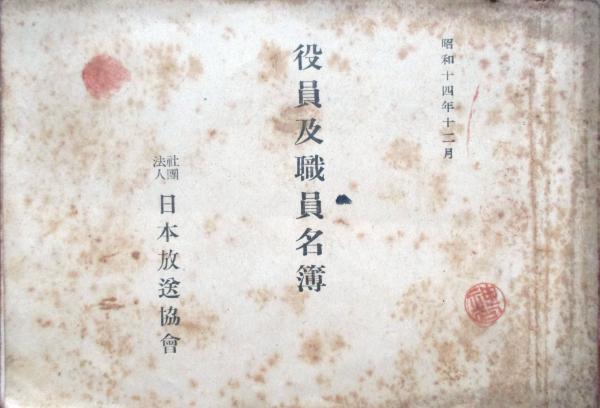 昭和十四年十二月
役員及職員名簿
社團法人 日本放送協會